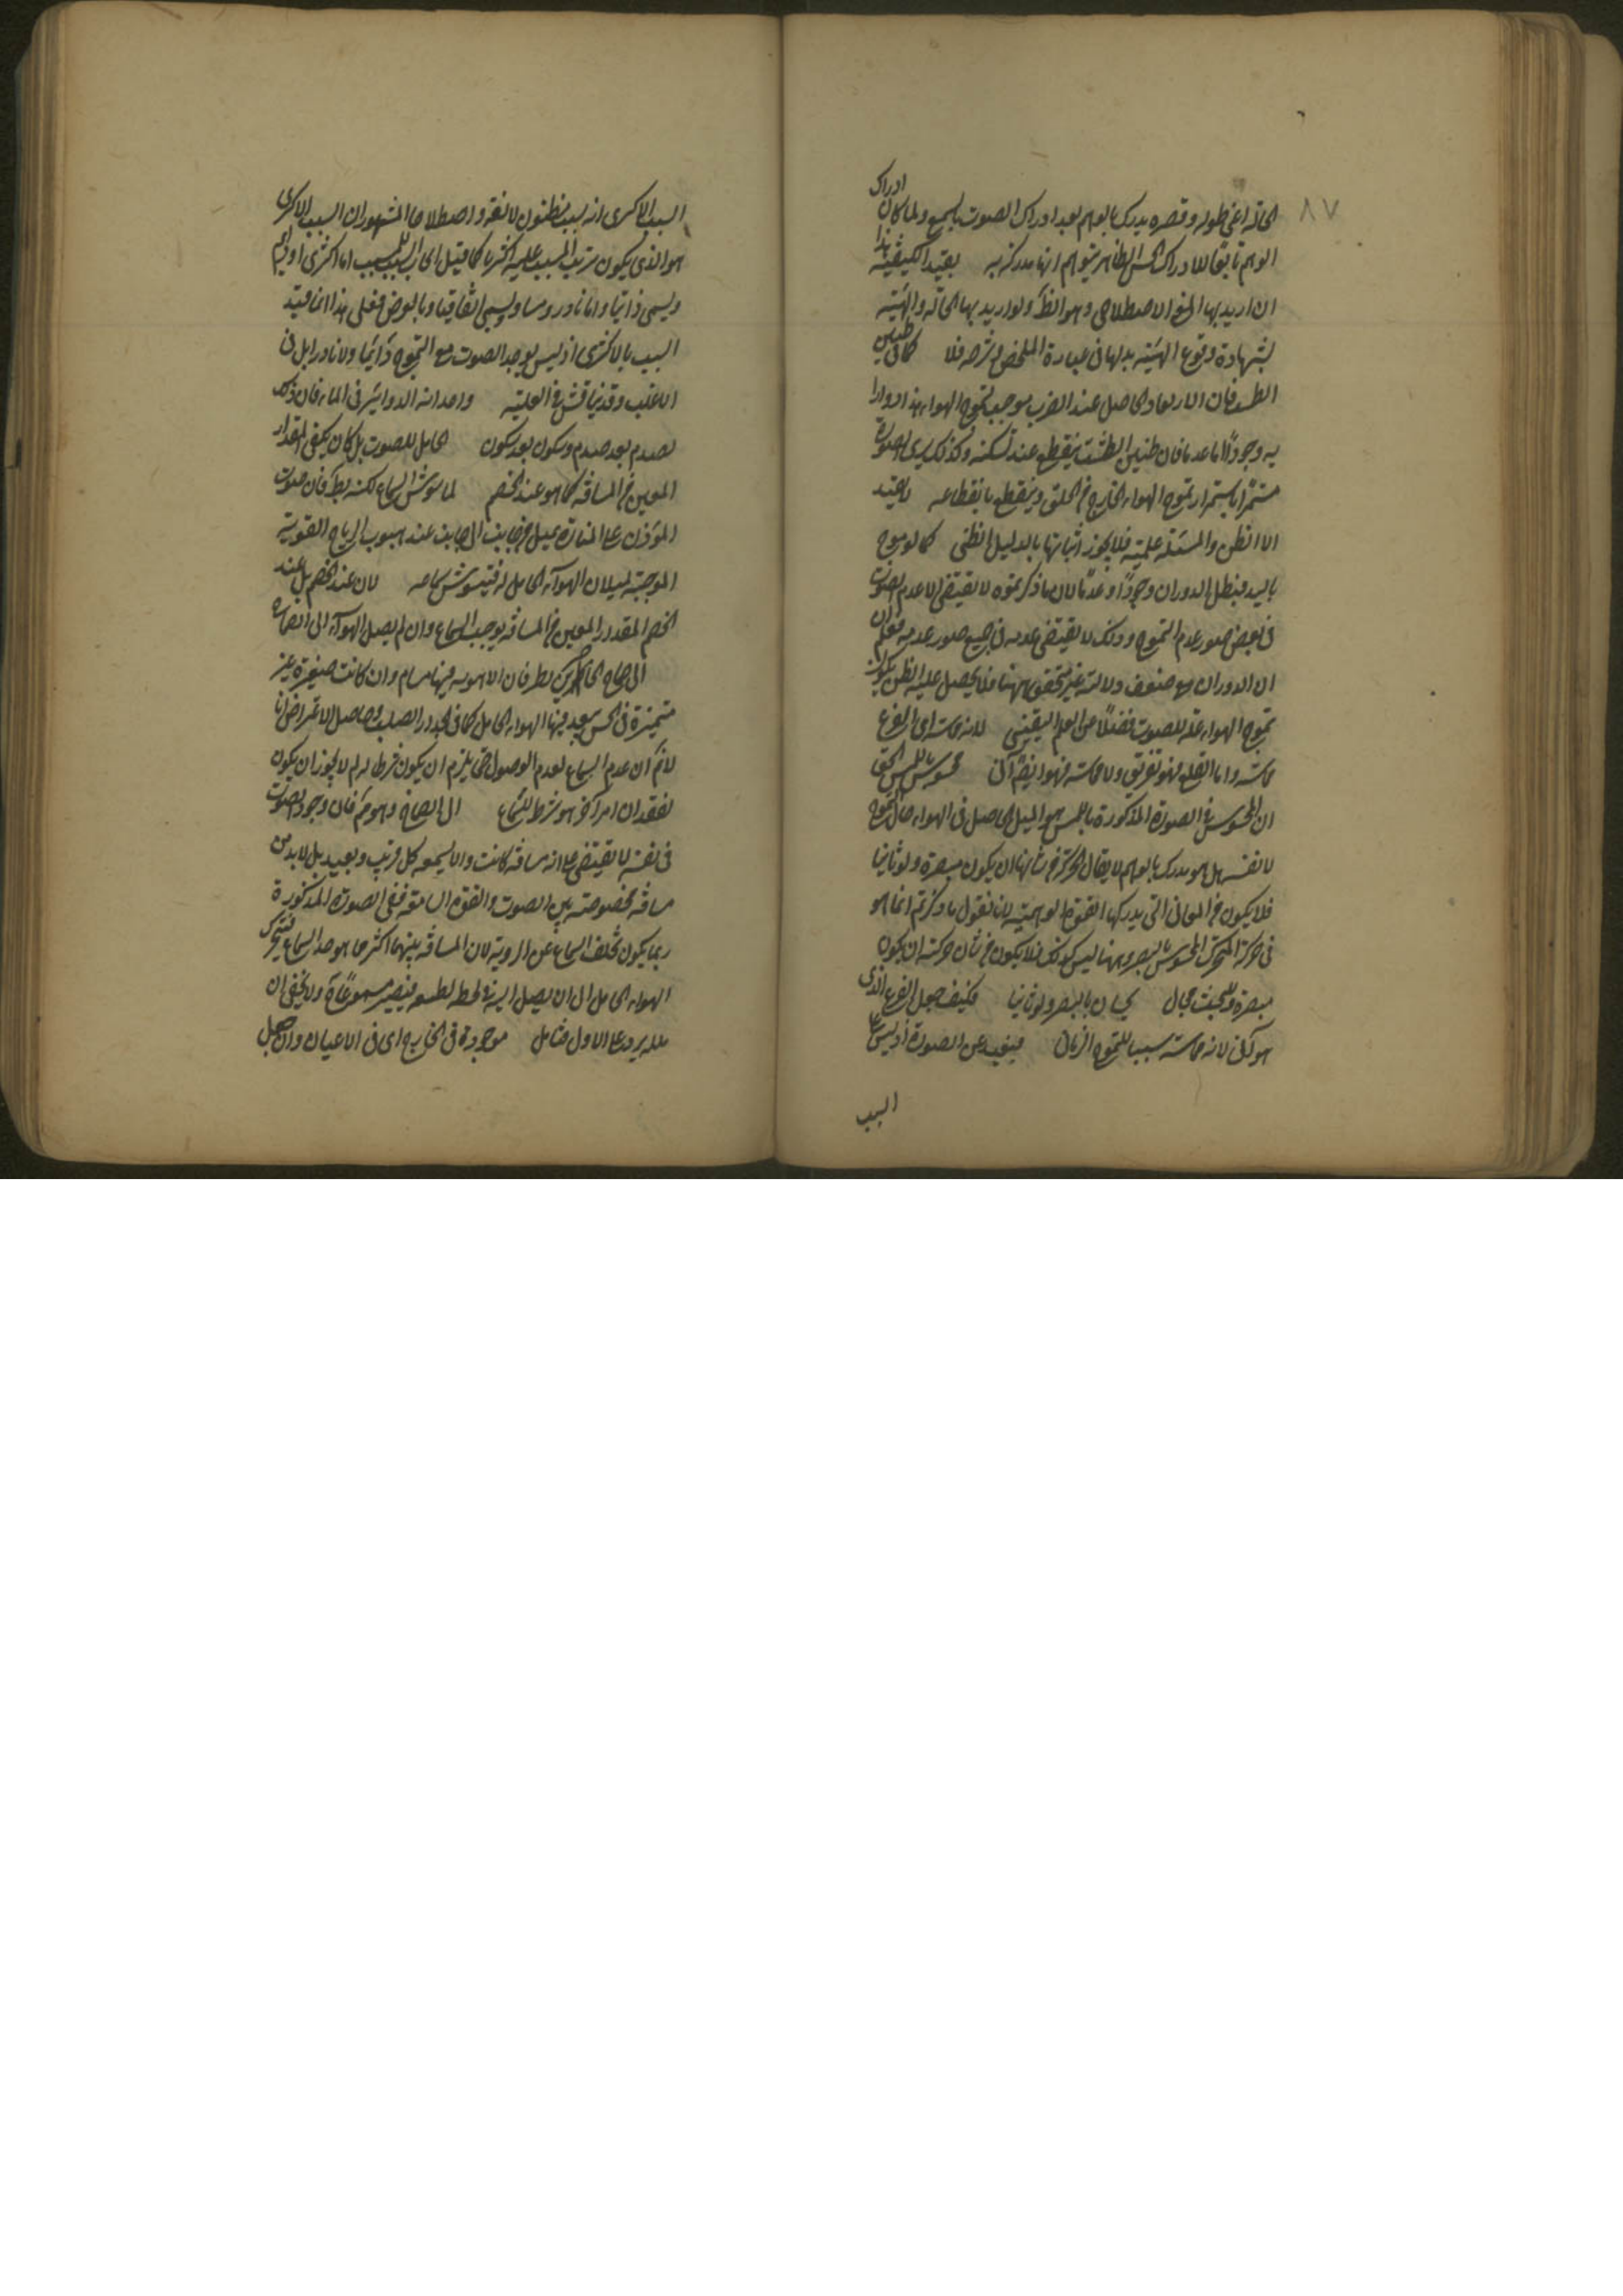 ٨٧
الحالة اعنى طوله وقصره يدرك بالوهم بعد ادراك الصوت بالسمع ولما كان ادراك
الوهم تابعا للادراك الحس الظاهر يتوهم انها مدركة به بقيد الكيفية هذا
ان اريد بها المعنى الاصطلاحى وهو الظ ولو اريد بها الحالة والهيئة
بشهادة وقوع الهيئة بدلها فى عبارة الملخص وشرحه فلا كما فى طنين
الطست فان الارتعاد الحاصل عند الضرب موجب لتموج الهواء هذا دوارا
به وجودا اما عدما فان طنين الطشت ينقطع عند تسكنه وكذلك يرى الصوت
مستمرا باستمرار تموج الهواء الخارج من الحلق وينقطع بانقطاعه لا يفيد
الا الظن والمسئلة علمية فلا يجوز اثباتها بالدليل الظنى كما لو موج
باليد فبطل الدوران وجودا وعدما لان ما ذكرتموه لا يقتضى الا عدم الصوت
فى بعض صور عدم التموج وذلك لا يقتضى عدمه فى جميع صور عدمه فعلم ان
ان الدوران مع ضعف دلالته غير متحقق ههنا فلا يحصل عليه الظن بكون
تموج الهواء علة للصوت فضلا عن العلم اليقينى لانه مماسة اى القرع
مماسة واما القلع فهو تفريق ولا مماسة فهو ايضا آنى محسوس باللمس الحق
ان المحسوس فى الصورة المذكورة باللمس هو الميل الحاصل فى الهواء حال التموج
لا نفسه بل هو مدرك بالوهم لا يقال الحركة من شانها ان يكون مبصرة ولو ثانيا
فلا يكون من المعانى التى يدركها القوة الوهمية لانا نقول ما ذكرتم انما هو
فى حركة المتحرك المحسوس بالبصر وههنا ليس كذلك فلا يكون من شان حركته ان يكون
مبصرة وللبحث مجال يحسان بالبصر ولو ثانيا فكيف جعل القرع الذى
هو آنى لانه مماسة سببا للتموج الزمانى فبعيد عن الصورة اذ ليس
السبب
السبب الاكثرى انه سبب مظنون لا لغة ولا اصطلاحا المشهور ان السبب الاكثرى
هو الذى يكون ترتب المسبب عليه اكثريا كما قيل ان السبب للمسبب اما اكثرى او دائم
ويسمى ذاتيا واما نادر ومساو ويسمى اتفاقيا وبالعرض فعلى هذا انما قيد
السبب بالاكثرى اذ ليس يوجد الصوت مع التموج دائما ولا نادرا بل فى
الاغلب وقد يناقش فى العلية واحداث الدوائر فى الماء فان ذلك
بصدم بعد صدم وسكون بعد سكون الحامل للصوت بل كان يكفى المقدار
المعين من المسافة كما هو عند الخصم لما شوش السماع لكنه بط فان صوت
المؤذن على المنارة يميل من جانب الى جانب عند هبوب الرياح القوية
الموجبة لميلان الهواء الحامل له فيشوش سماعه لان عند الخصم بل عند
الخصم المقدار المعين من المسافة يوجب السماع وان لم يصل الهواء الى الصماخ
متميزة فى الحس ينفذ فيها الهواء الحامل كما فى الجدار الصلب وحاصل الاعتراض انا
لا نم ان عدم السماع لعدم الوصول حتى يلزم ان يكون شرطا له لم لا يجوز ان يكون
لفقدان امر آخر هو شرط للسماع الى الصماخ وهو نم فان وجود الصوت
فى نفسه لا يقتضى على اية مسافة كانت والا يسمعه كل قريب وبعيد بل لا بد من
مسافة مخصوصة بين الصوت والقوة السامعة ففى الصورة المذكورة
ربما يكون تخلف السماع عن الرؤية لان المسافة بينهما اكثر مما هو حد السماع فيتحرك
الهواء الحامل الى ان يصل اليه فيصير مسموعا ولا يخفى ان
هذا يرد على الاول فتامل موجودة فى الخارج اى فى الاعيان وان جعل